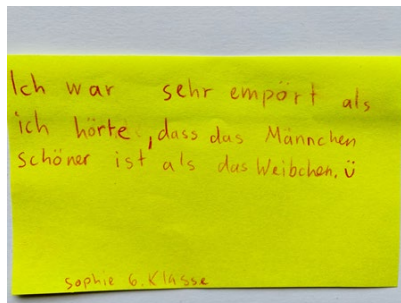 Ich war sehr empört als
ich hörte, dass das Männchen
schöner ist als das Weibchen. ü
sophie 6. Klasse